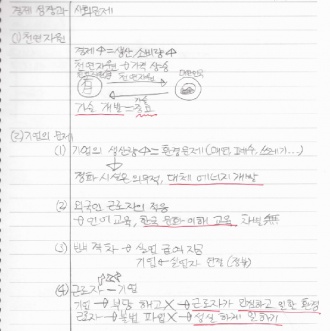 경제 성장과 사회문제
(1) 천연자원
경제↑=생산 소비량↑
천연자원→가격 상승
천연자원
기술 개발=중요
(2) 기업의 문제
(1) 기업의 생산량↑=환경문제(매연, 폐수, 쓰레기...)
정화 시설은 의무적, 대체 에너지 개발
(2) 외국인 근로자의 적응
→언어교육, 한국 문화 이해 교육
(3) 실업 급여 지급
기업↔실업자 연결 (정부)
(4) 근로자 기업
기업→부당 해고X→근로자가 안심하고 일할 환경
근로자→불법 파업X→성실하게 일하기